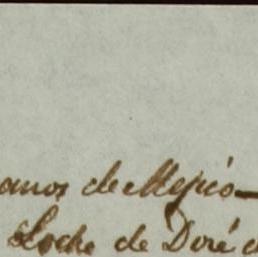 anos de Mejico—
Loche de Doré